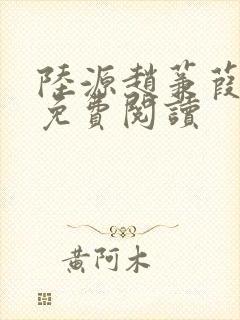 陸源趙蒹葭
免費閱讀
黃阿木